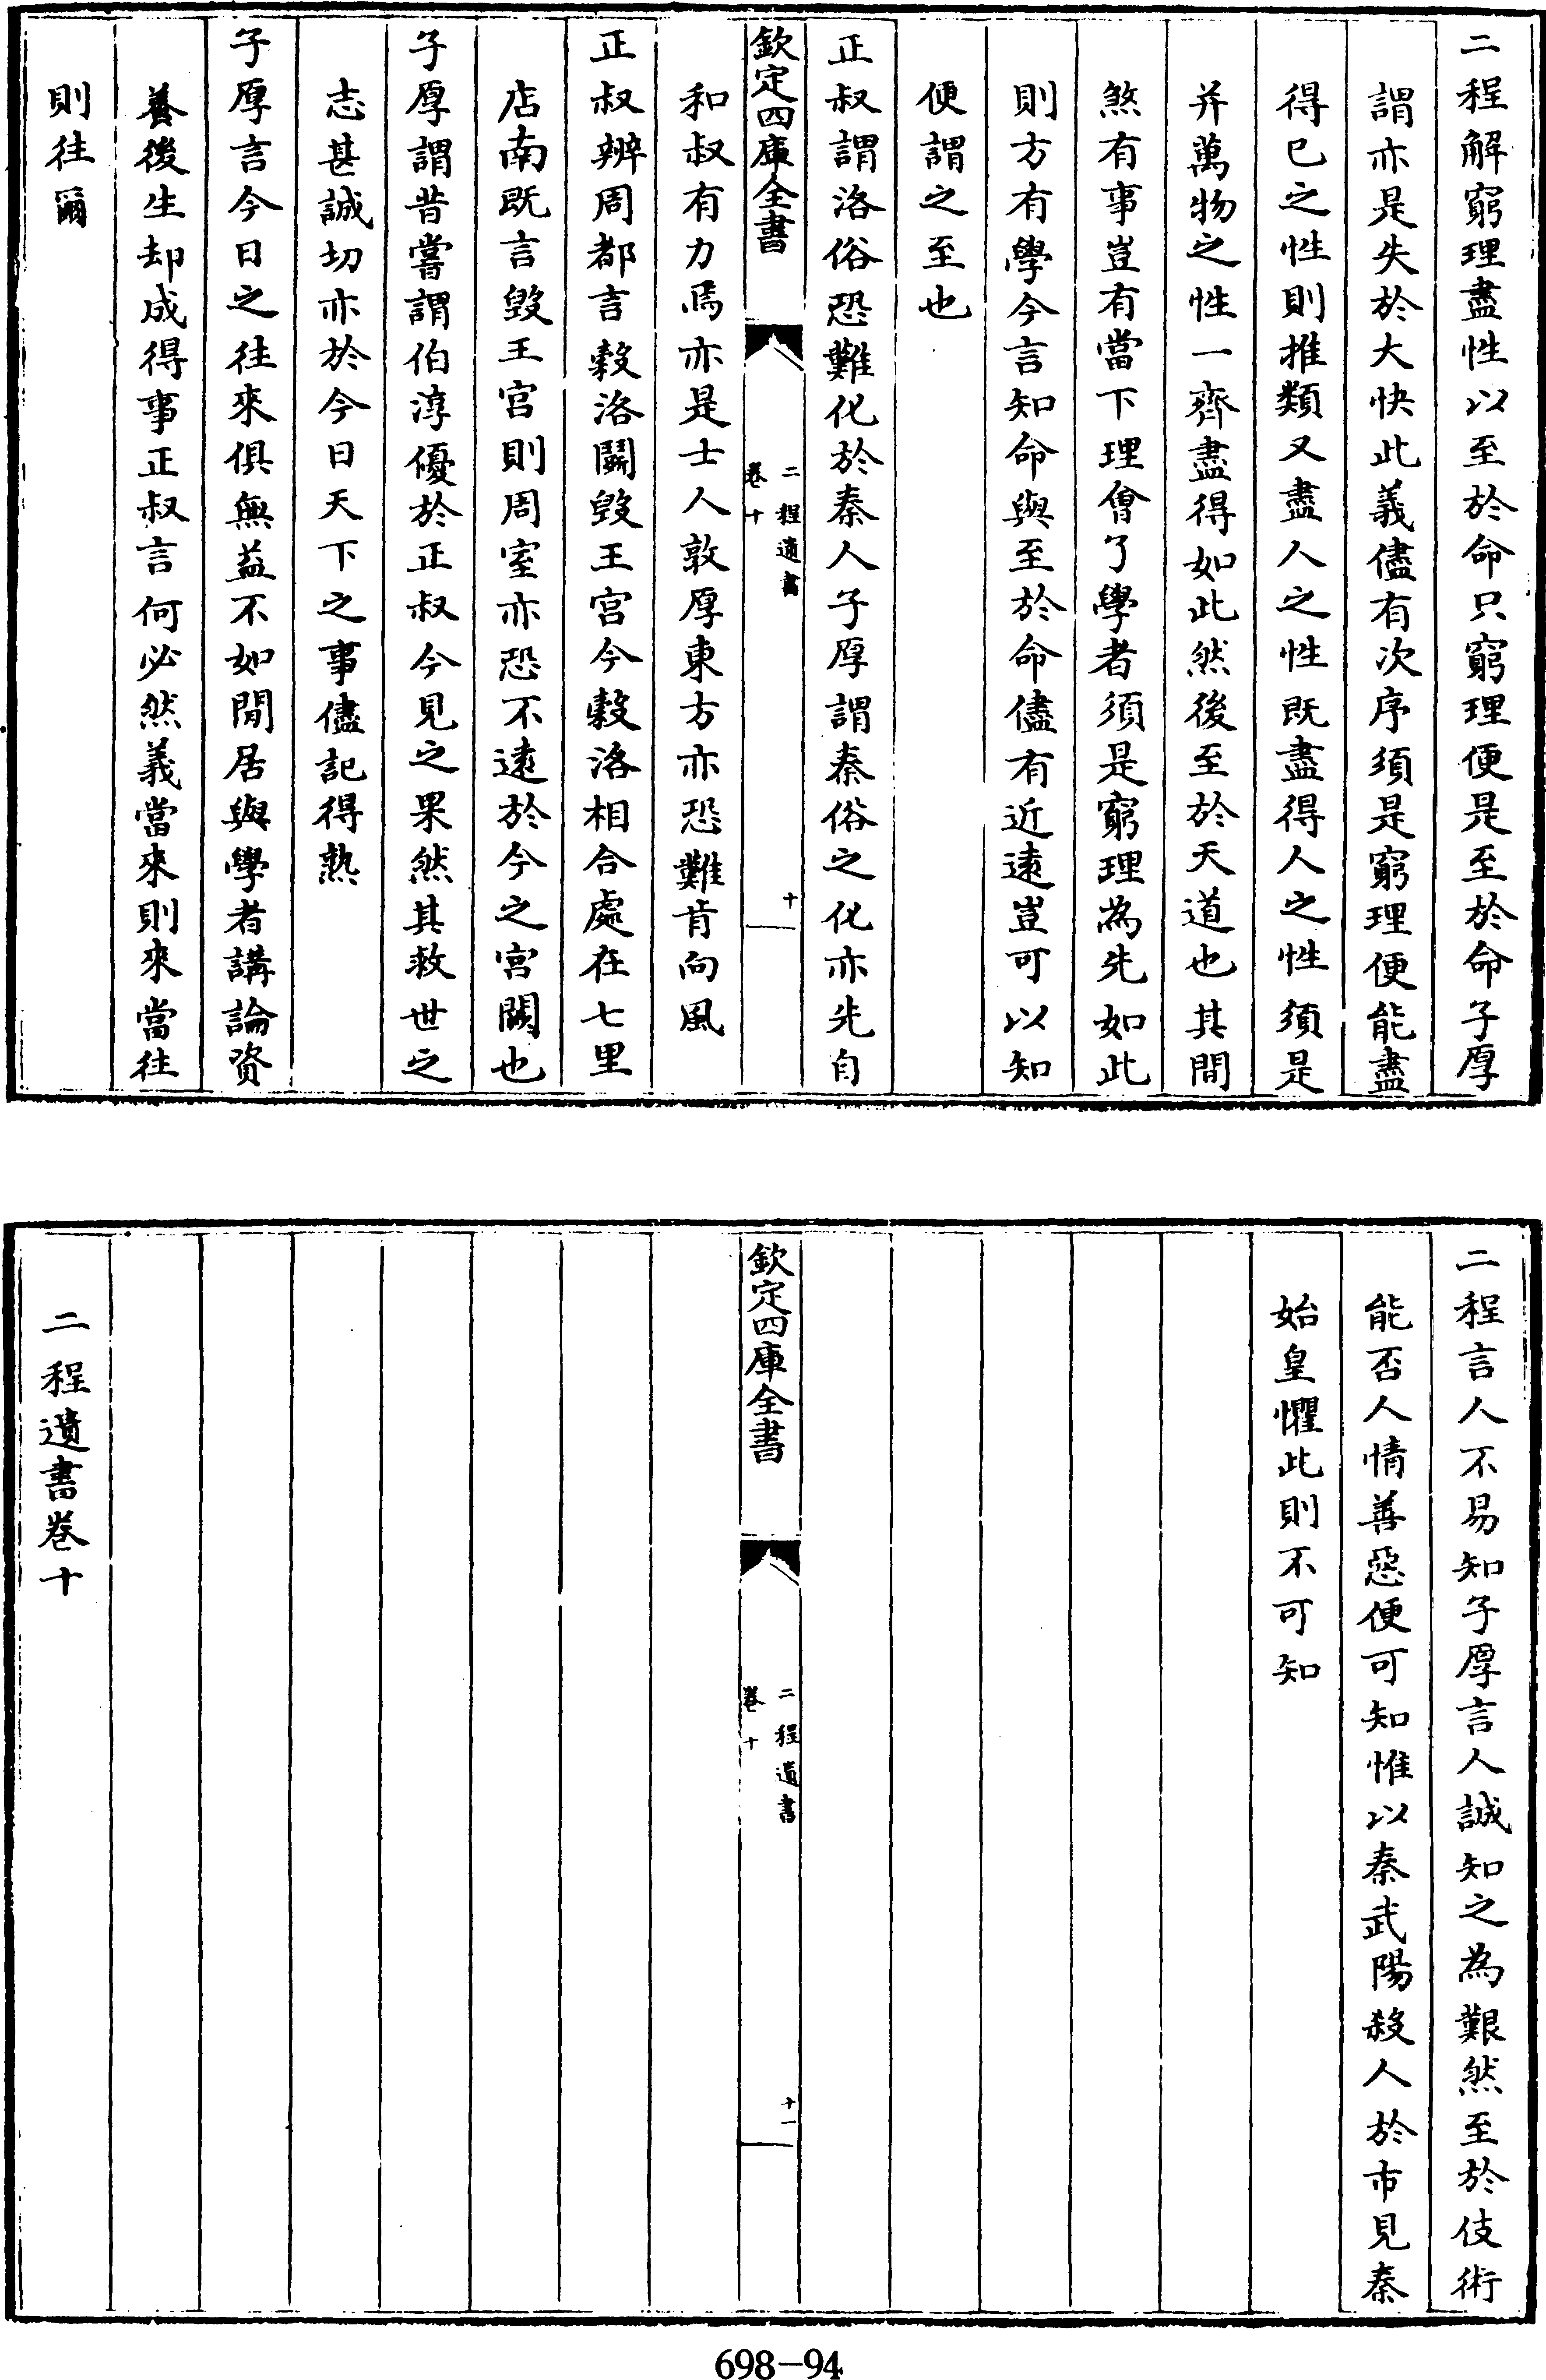 二程解窮理盡性以至於命只窮理便是至於命子厚
謂亦是失於大快此義儘有次序須是窮理便能盡
得已之性則推類又盡人之性既盡得人之性須是
并萬物之性一齊盡得如此然後至於天道也其間
煞有事豈有當下理會了學者須是窮理為先如此
則方有學今言知命與至於命儘有近遠豈可以知
便謂之至也
正叔謂洛俗恐難化於秦人子厚謂秦俗之化亦先自
欽定四庫全書
二程遺書
卷十
十
和叔有力焉亦是士人敦厚東方亦恐難肯向風
正叔辨周都言穀洛鬬毀王宮今穀洛相合處在七里
店南既言毀王宮則周室亦恐不遠於今之宮闕也
子厚謂昔嘗謂伯淳優於正叔今見之果然其救世之
志甚誠切亦於今日天下之事儘記得熟
子厚言今日之往來俱無益不如閒居與學者講論資
養後生却成得事正叔言何必然義當來則來當往
則往爾
二程言人不易知子厚言人誠知之為艱然至於伎術
能否人情善惡便可知惟以秦武陽殺人於市見秦
始皇懼此則不可知
欽定四庫全書
二程遺書
卷十
十一
二程遺書卷十
698-94